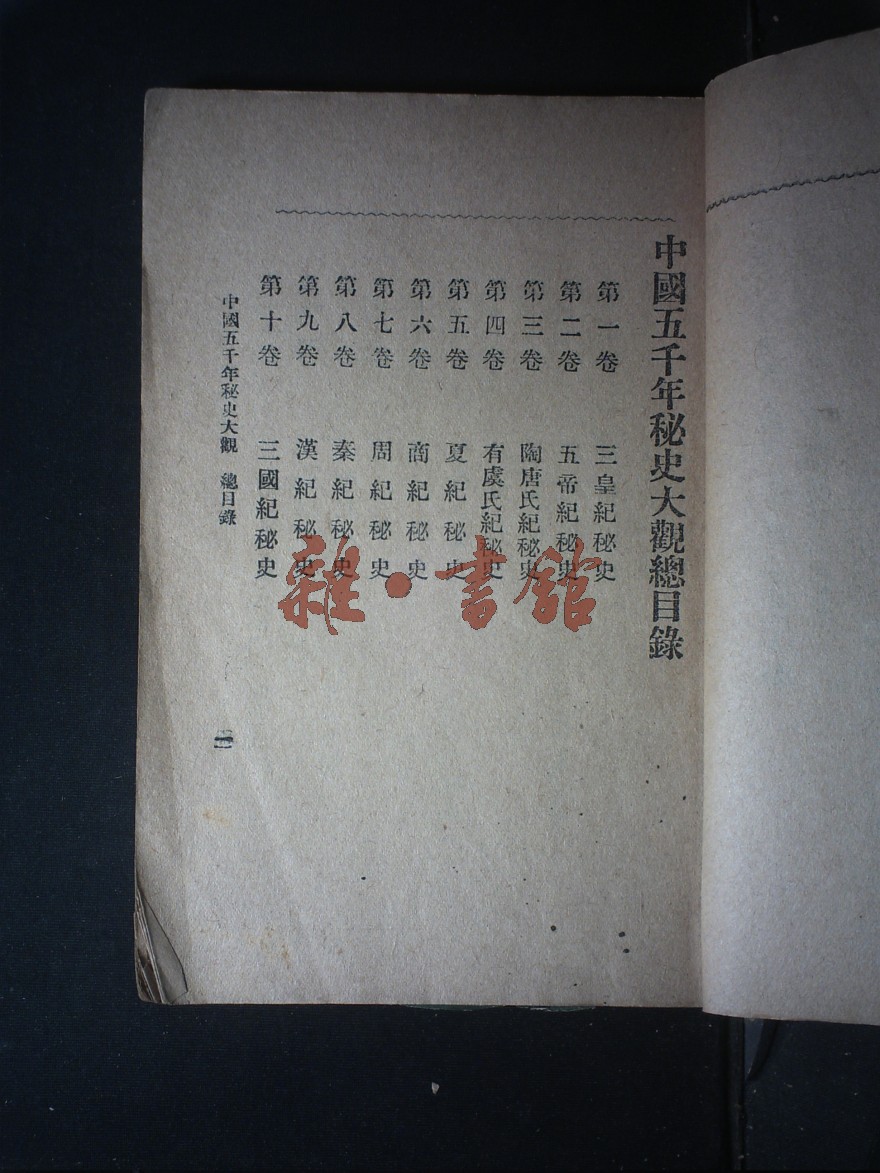 中國五千年秘史大觀總目錄
第一卷　三皇紀秘史
第二卷　五帝紀秘史
第三卷　陶唐氏紀秘史
第四卷　有虞氏紀秘史
第五卷　夏紀秘史
第六卷　商紀秘史
第七卷　周紀秘史
第八卷　秦紀秘史
第九卷　漢紀秘史
第十卷　三國紀秘史
中國五千年秘史大觀　總目錄
雜·書館